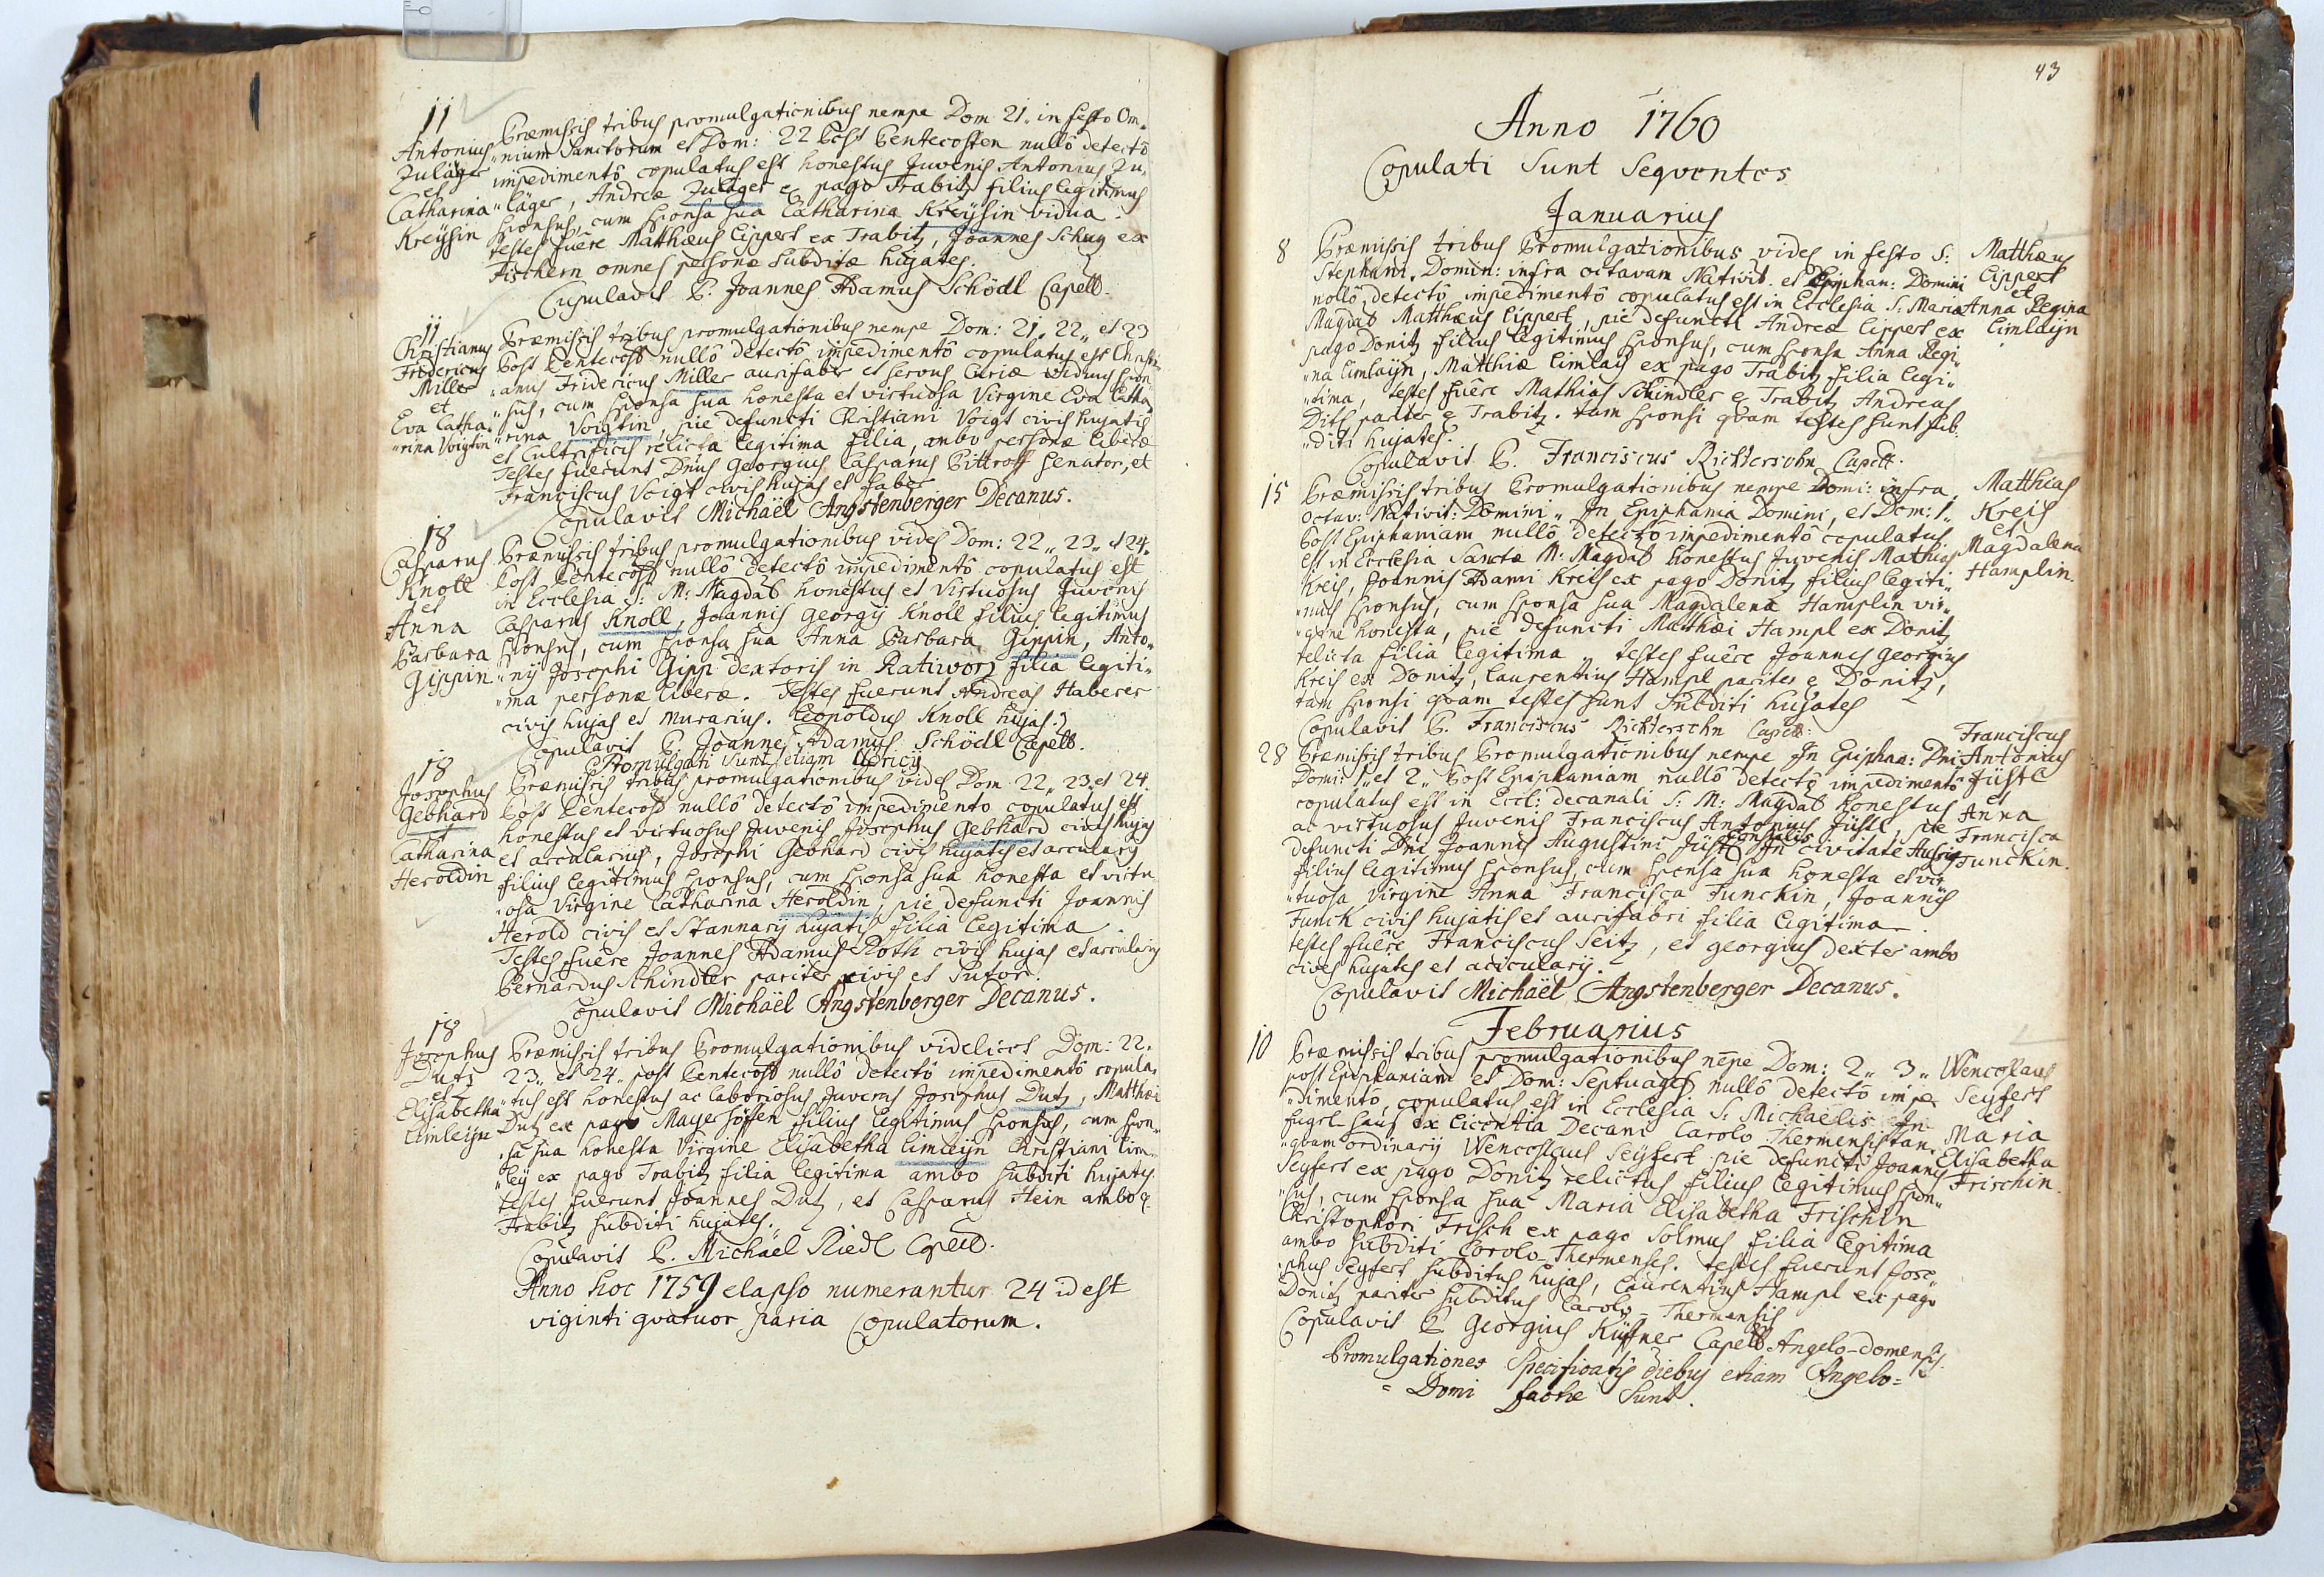 11
Antonius
Zuläger
et
Catharina
Kreÿsin
Præmissis tribus promulgationibus nempe Dom 21. in festo Om„
„nium Sanctorum et Dom: 22 Post Pentecosten nullô detectô
impedimentô copulatus est honestus Juvenis Antonius Zu„
„läger, Andreæ Zuläger e pago Trabitz filius legitimus
sponsus, cum sponsa sua Catharina Kreÿsin vidua.
testes fuêre Matthæus Lippert ex Trabitz, Joannes Schug ex
Fischern omnes personæ subditæ hujates.
Copulavit P. Joannes Adamus Schödl Capell.
11
Christianus
Fredericus
Miller
et
Eva Catha„
„rina Voigtin
Præmissis tribus promulgationibus nempe Dom: 21„ 22„ et 23
Post Pentecost nullô detectô impedimentô copulatus est Christi„
„anus Fridericus Miller aurifaber et servus Curiæ viduus spon„
„sus, cum sponsa sua honesta et virtuosa Virgine Eva Catha„
„rina Voigtin, pie defuncti Christiani Voigt civis hujatis
et Cultrificis relicta legitima filia, ambo personæ liberæ
Testes fuerunt Dnus Georgius Casparus Pittroff Senator, et
Franciscus Voigt civis hujas et faber
Copulavit Michaël Angstenberger Decanus.
18
Casparus
Knoll
et
Anna
Barbara
Gippin
Præmissis tribus promulgationibus vides Dom: 22„ 23„ et 24.
Post Pentecost nullô detectô impedimentô copulatus est
in Ecclesia S: M: Magdas honestus et virtuosus Juvenis
Casparus Knoll, Joannis Georgij Knoll filius legitimus
sponsus, cum sponsa sua Anna Barbara Gippin, Anto„
„nij Josephi Gipp dextoris in Ratiworz filia legiti„
„ma personæ liberæ. Testes fuerunt Andreas Haberer
civis hujas et murarius. Leopoldus Knoll hujas.
Copulavit P. Joannes Adamus Schödl Capell.
Promulgati sunt etiam
18
Josephus
Gebhard
et
Catharina
Heroldin
Præmissis tribus promulgationibus vides Dom 22„ 23„ et 24.
Post Pentecost nullô detectô impedimento copulatus est
honestus et virtuosus Juvenis Josephus Gebhard civis hujas
et arcularius, Josephi Gebhard civis hujatis et arcularij
filius legitimus sponsus, cum sponsa sua honesta et virtu„
„osa Virgine Catharina Heroldin, pie defuncti Joannis
Herold civis et Stannarij hujatis filia legitima.
Testes fuêre Joannes Adamus Roth civis hujas et arcularij
Bernardus Schindler pariter civis et Sutor.
Copulavit Michaël Angstenberger Decanus.
18
Josephus
Dutz
et
Elisabetha
Limleijn
Præmissis tribus Promulgationibus videlicet Dom: 22.
23„ et 24„ post Pentecost nullô detectô impedimentô copula„
„tus est honestus ac laboriosus Juvenis Josephus Dutz, Matthæi
Dutz ex pago Mayerhöffen filius legitimus sponsus, cum spon„
„sa sua honesta Virgine Elisabetha Limleijn Christiani Lim„
„leij ex pago Trabitz filia legitima ambo subditi hujates
testes fuerunt Joannes Dutz, et Casparus Hein ambo e
Trabitz subditi hujates.
Copulavit P. Michaël Riedl Capell.
Anno hoc 1759 elapso numerantur 24 id est
viginti qvatuor paria Copulatorum.
43
Anno 1760
Copulati Sunt Seqventes
Januarius
8
Præmissis tribus Promulgationibus vides in festo S:
Stephani, Domin: infra octavam Nativit. et Epiphan: Domini
nullô detectô impedimentô copulatus est in Ecclesia S: Mariæ
Magdas Matthæus Lippert, pie defuncti Andreæ Lippert ex
pago Donitz filius legitimus sponsus, cum sponsa Anna Regi„
„na Limlaijn, Matthiæ Limlaij ex pago Trabitz filia legi„
„tima, testes fuêre Mathias Schindler e Trabitz Andreas
Ditz pariter e Trabitz. tam sponsi qvam testes sunt sub„
„diti hujates.
Copulavit P. Franciscus Richtersohn Capell.
Matthæus
Lippert
et
Anna Regina
Limlaijn
15
Præmissis tribus Promulgationibus nempe Domi: infra
octav: Nativit: Domini„ In Epiphania Domini, et Dom: 1„
Post Epiphaniam nullô detectô impedimentô copulatus
est in Ecclesia Sanctæ M: Magdas honestus Juvenis Mathias
Kreis, Joannis Adami Kreis ex pago Donitz filius legiti„
„mus sponsus, cum sponsa sua Magdalena Hamplin vir„
„gine honesta, pie defuncti Matthæi Hampl ex Donitz
relicta filia legitima„ testes fuêre Joannes Georgius
Kreis ex Donitz, Laurentius Hampl pariter e Donitz,
tam sponsi qvam testes sunt Subditi hujates
Copulavit P. Franciscus Richtersohn Capell:
Matthias
Kreis
et
Magdalena
Hamplin.
28
Præmissis tribus Promulgationibus nempe In Epiphan: Dni
Domi: 1„ et 2„ Post Epiphaniam nullô detectô impedimentô
copulatus est in Eccl: decanali S: M: Magdas honestus
ac virtuosus Juvenis Franciscus Antonius Jüstl, pie
defuncti Dni Joannis Augustini Jüstl Consulis In civitate Aussig
filius legitimus sponsus, cum sponsa sua honesta et vir„
„tuosa Virgine Anna Francisca Funckin, Joannis
Funck civis hujatis et aurifabri filia legitima.
testes fuêre Franciscus Seitz, et Georgius dexter ambo
cives hujates et acicularij.
Copulavit Michaël Angstenberger Decanus.
Franciscus
Antonius
Jüstl
Anna
Francisca
Funckin.
Februarius
10
Præmissis tribus promulgationibus nepe Dom: 2„ 3„
post Epiphaniam et Dom: Septuages nullô detectô impe„
„dimentô copulatus est in Ecclesia S: Michaelis In
Engelhaus ex Licentia Decani Carolo Thermensis tan„
„qvam ordinarij Wenceslaus Seyfert pie defuncti Joannis
Seyfert ex pago Donitz relictus filius legitimus spon„
„sus, cum sponsa sua Maria Elisabetha Frischin
Christophori Frisch ex pago Solmus filia legitima
ambo subditi Carolo-Thermenses. testes fuerunt Jose„
„phus Seyfert subditus hujas, Laurentius Hampl ex pago
Donitz pariter subditus Carolo-Thermensis
Copulavit P. Georgius Küttner Capell Angelo-domensis.
Promulgationes Specificatis diebus etiam Angelo=
=Domi factæ Sunt.
Wenceslaus
Seyfert
et
Maria
Elisabetha
Frischin.